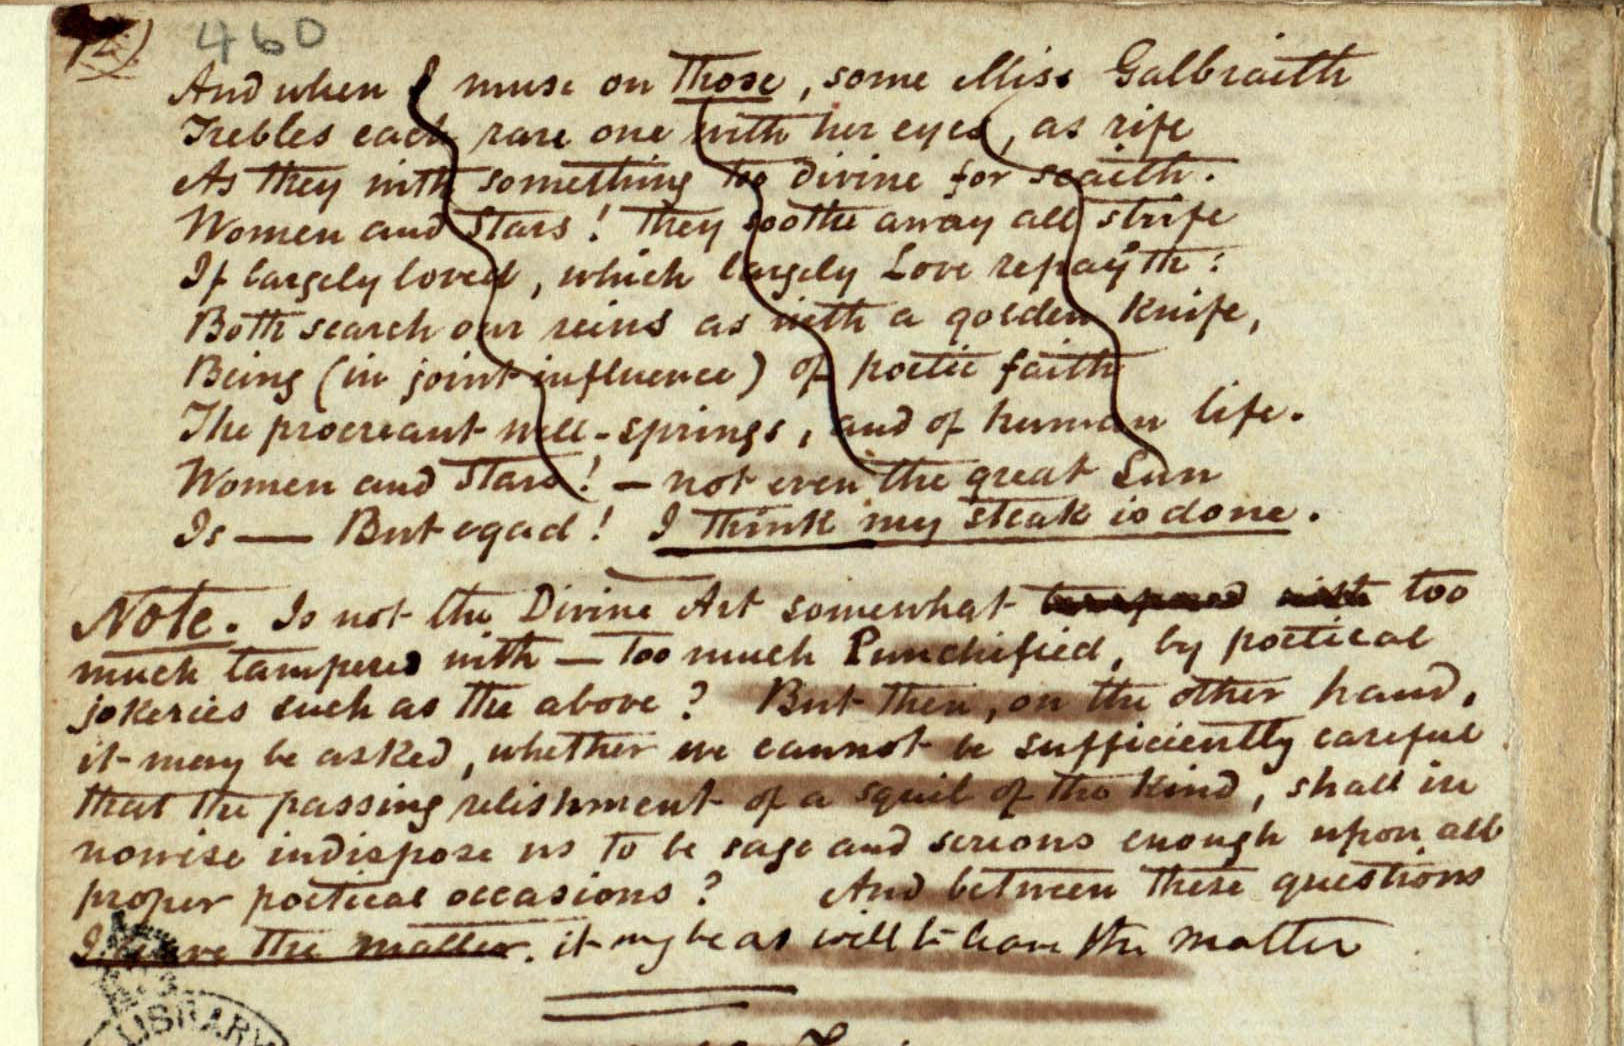 460
And when I muse on Those, some Miss Galbraith
Trebles each rare one with her eyes, as rife
As they with something too divine for scaith.
Women and Stars! They soothe away all strife
If largely loved, which largely Love repayïth:
Both search our reins as with a golden knife,
Being (in joint influence) of poetic faith
The procreant well-springs, and of human life.
Women and Stars! — not even the great Sun
Is — But egad! I think my steak is done.
Note. Is not the Divine Art somewhat too
much tampered with — too much Punchified, by poetical
jokeries such as the above? But then, on the other hand,
it may be asked, whether we cannot be sufficiently careful
that the passing relishment of a squib of the kind, shall in
nowise indispose us to be sage and serious enough upon all
proper poetical occasions? And between these questions
I leave the matter. it may be as well to leave the matter
LIBRARY